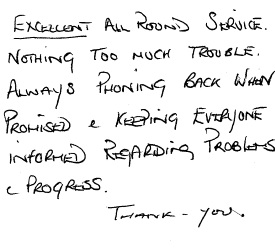 EXCELLENT ALL ROUND SERVICE.
NOTHING TOO MUCH TROUBLE.
ALWAYS PHONING BACK WHEN
PROMISED & KEEPING EVERYONE
INFORMED REGARDING PROBLEMS
& PROGRESS.
THANK-YOU.